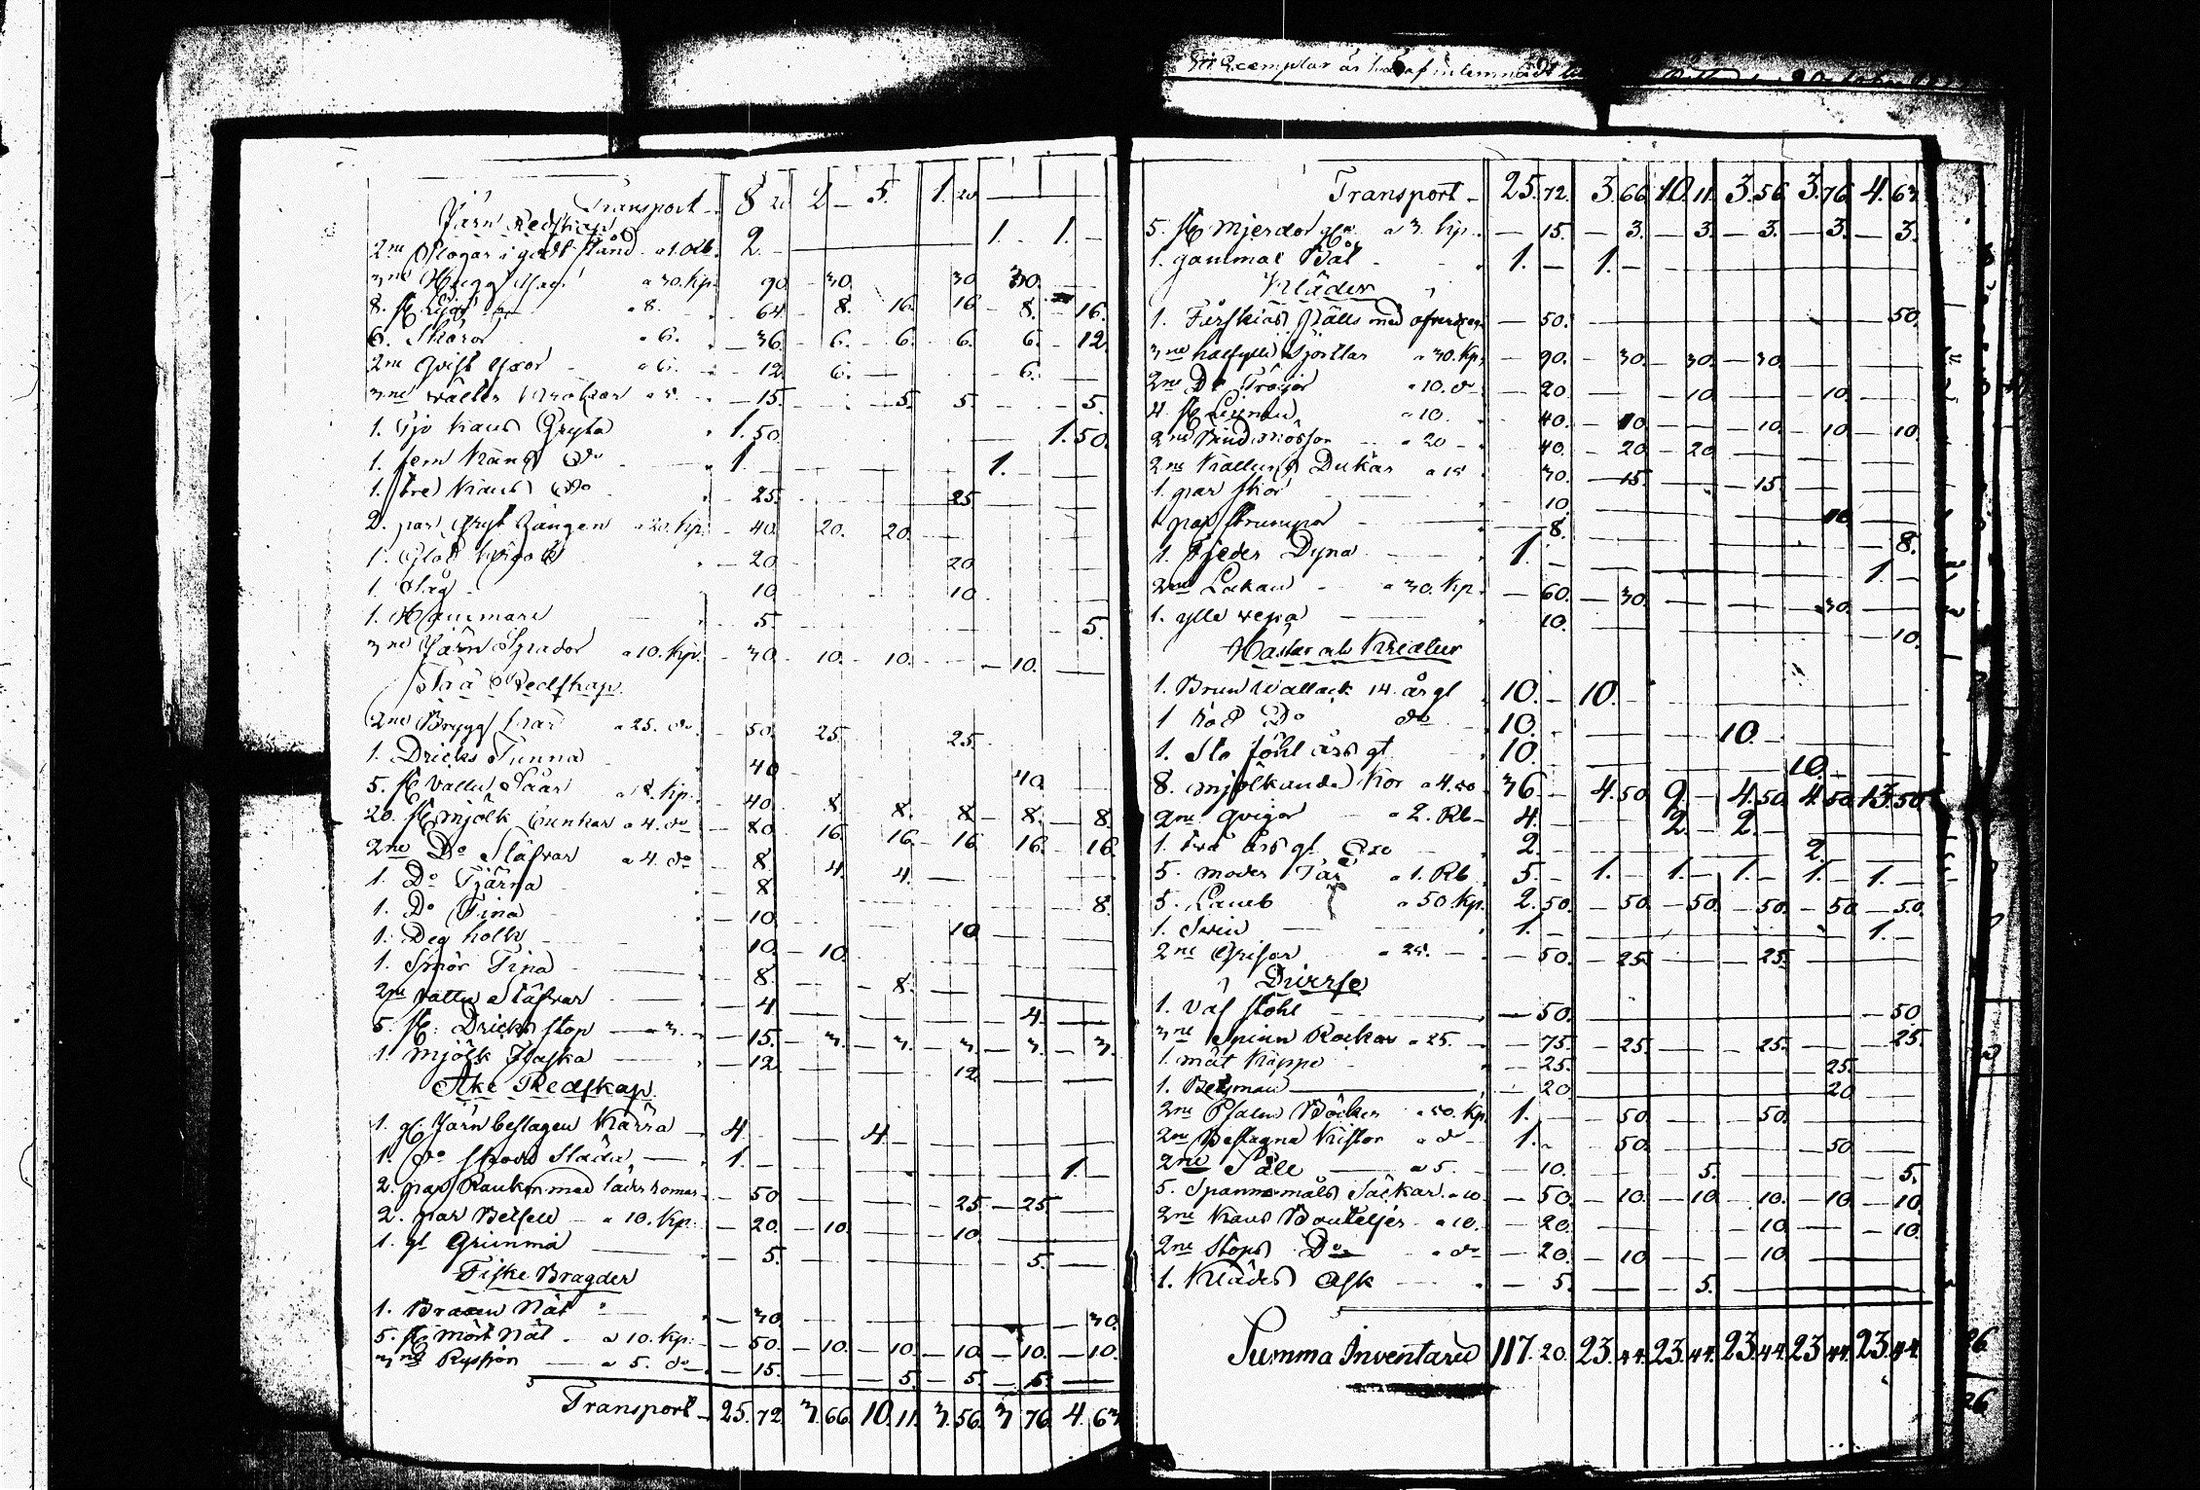 Ett Exemplar är häraf inlemnadt
Transport 8 20 2 — 5. 1. 20
Järn Redskap
2ne Plogar i godt stånd a 1. Rb. 2. — 1. — 1. —
3ne Hugg Yxor a 30. kp. — 90. — 30. 30 30. —
8. st. a 8. — 64. — 8. — 16. — 16 — 8. — 16.
6. Skäror a 6. — 36. — 6. — 6. — 6. 6. — 12.
2ne Qvist Yxor a 6. — 12. 6. — 6. —
3ne a 5. — 15. — 5. 5. — 5.
1. Sju Kans Gryta 1. 50. — 1. 50.
1. fem Kans Do 1. — 1. —
1. tre Kans Do — 25. 25
2. par Gryt Tängen a 20. kp. — 40. 20. 20. —
1. Glöd — 20 20
1. Såg — 10 10.
1. Hammare — 5. — 5.
3ne Järn Spador a 10. kp. — 30 — 10. — 10. — — 10. —
Trä Redskap.
2ne Brygg kar a 25. do — 50. 25. 25. —
1. Dricks Tunna 40 — 40. —
5. st. Vattu Såar a 8. kp. — 40. 8. 8. — 8 — 8. — 8.
20. st. Mjölk Bunkar a 4. do — 80. 16. 16. — 16. 16. — 16.
2ne Do Stäfvar a 4. do — 8. 4. 4. —
1. Do Tjärna — 8. — 8.
1. Do Tina — 10. — 10. —
1. Deg holk — 10. — 10. —
1. Smör Tina — 8. — — 8. —
2ne Vattu Stäfvar — 4 — 4. —
5. st. Dricks stop — a 3. — 15. — 3. — 3. — 3. — 3. — 3.
1. Mjölk Flaska — 12. 12. —
Åke Redskap.
1. gl. Järnbeslagen Kärra — 4. — 4. —
1. do skodd Släda — 1. — 1. —
2. par Rankor med läder — 50. — 25 — 25. —
2. par Betsel — a 10. kp. — 20. — 10. — 10. —
1. gl. Grimma — 5. — 5. —
Fiske Bragder
1. Braxen Nät — 30. — 30.
5. st. Mört Nät — a 10. kp. — 50. — 10. — 10. — 10. — 10. — 10.
3ne Ryssjor — a 5. do — 15. — — 5. — 5. — 5. —
Transport — 25. 72. 3. 66. 10. 11. 3. 56. 3. 76. 4. 63
Transport — 25. 72. 3. 66. 10. 11. 3. 56. 3. 76. 4. 63.
5. st. Mjerdor gla. a 3. kp. — 15. — 3. — 3. — 3. — 3. — 3.
1. gammal Båt — 1. — 1. —
Kläder
1. Fårskins fälls med — 50. — 50.
3ne Skjortlar a 30. kp. — 90. — 30. — 30. — 30. —
2ne Do Tröjor a 10. do — 20 — 10. — 10. —
4 st. a 10. — 40. — 10. — 10. — 10 — 10.
2ne Bind mössor — a 20 — 40. — 20 — 20 —
2ne Dukar a 15 30. — 15. — 15. —
1. par skor — 10. — 10. —
1 par strumpor — 8. — 8.
1. Fjeder Dyna — 1. — 1. —
2ne Lakan a 30. kp. — 60. — 30. — 30. —
1. ylle — 10. — 10.
Hästar och Kreatur
1. Brun Wallack 14. år gl 10. — 10. —
1 Röd Do do 10. — 10. —
1. Sto föhl års gt 10. — 10. —
8. Mjölkande Kor a 4. 50 36. — 4. 50. 9. — 4. 50. 4. 50. 13. 50.
2ne Qvigor a 2. Rb — 4. — 2. — 2. —
1. två års gl. Oxe 2. — 2. —
5. moder Får a 1. Rb 5. — 1. — 1. — 1. — 1. — 1. —
5. Lamb a 50. kp. 2. 50. — 50. — 50. — 50. — 50. — 50.
1. Svin — 1. — 1. —
2ne Grisar a 25. — 50. — 25. — 25. —
Diverse
1. Väf stohl — 50. — 50.
3ne Spinn Rockar a 25. — 75. — 25. — 25. — 25.
1. mål Kappe — 25. — 25. —
1. Betsman — 20. — 20 —
2ne Psalm Böcker a 50. kp. 1. — 50. — 50. —
2ne Beslagna Kistor a do — 1. — 50. — 50. —
2ne Såll — a 5. — 10. — 5. — 5.
5. Spannmåls Säckar. a 10. — 50. — 10. — 10. — 10. — 10. — 10.
2ne Kans Bouteljer a 10. — 20. — 10. — 10.
2ne Stops Do a do — 20. — 10 — 10. —
1. Kläder Ask — 5. — 5. —
Summa Inventarii 117. 20. 23. 44. 23. 44. 23. 44. 23 44. 23. 44.
26
26.